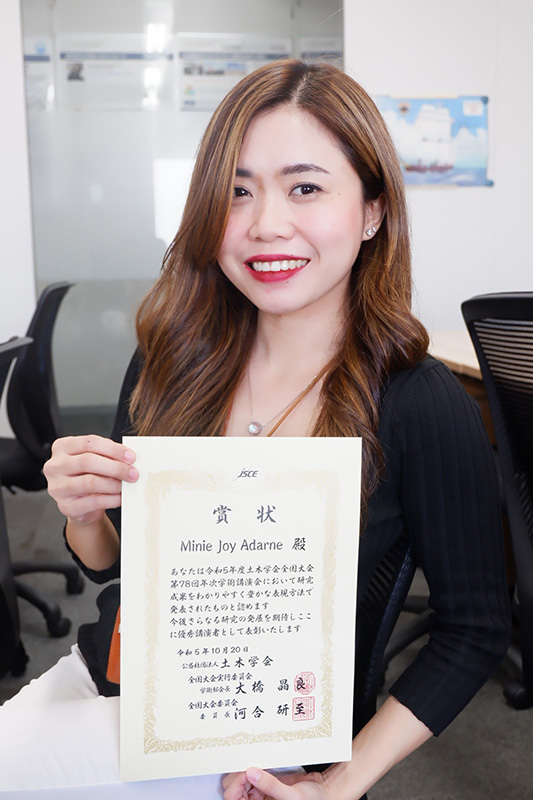 JSCE
賞状
Minie Joy Adarne 殿
あなたは令和5年度土木学会全国大会
第78回年次学術講演会において研究
成果をわかりやすく豊かな表現方法で
発表されたものと認めます
今後さらなる研究の発展を期待しここ
に優秀講演者として表彰いたします
令和5年10月20日
公益社団法人 土木学会
全国大会実行委員会
学術部会長 大橋 晶良
全国大会委員会
委員長 河合 研至